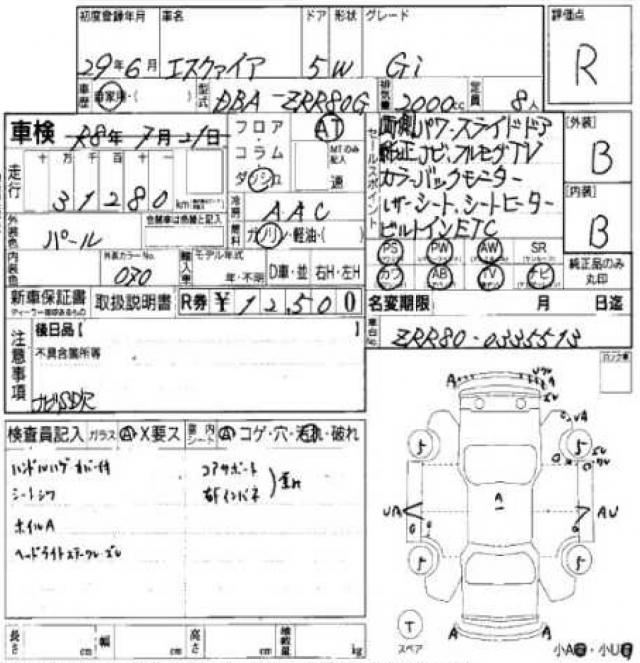 初度登録年月 車名 ドア 形状 グレード 評価点
29年6月 エスクァイア 5 W Gi R
車歴 自家用・( ) 型式 DBA-ZRR80G 排気量 2000cc 定員 8人
車検 R8年7月21日 フロア AT
コラム MTのみ記入
ダ 速
セールスポイント
両側パワースライドドア
純正ナビ,フルセグTV
カラーバックモニター
レザーシート、シートヒーター
ビルトインETC
[外装] B
[内装] B
走行 十 万 千 百 十 一
31280 km
冷房 AAC
燃料 ガソリン・軽油・( )
外装色 パール 色替車は色替と記入
内装色 外装カラーNo. 070
輸入車 モデル年式 年・不明 D車・並 右H・左H
PS PW AW SR
カワ AB TV ナビ
純正品のみ丸印
新車保証書 取扱説明書 R券 ¥12,500
名変期限 月 日迄
車台No. ZRR80-0335513
注意事項
後日品【 】
不具合箇所等
ナビSD欠
検査員記入 ガラス A・X要ス 車内シート A コゲ・穴・汚れ・破れ
シートシワ コアサポート
ホイルA
UA A AU
A A
T
スペア
長さ cm 幅 cm 高さ cm 積載量 kg